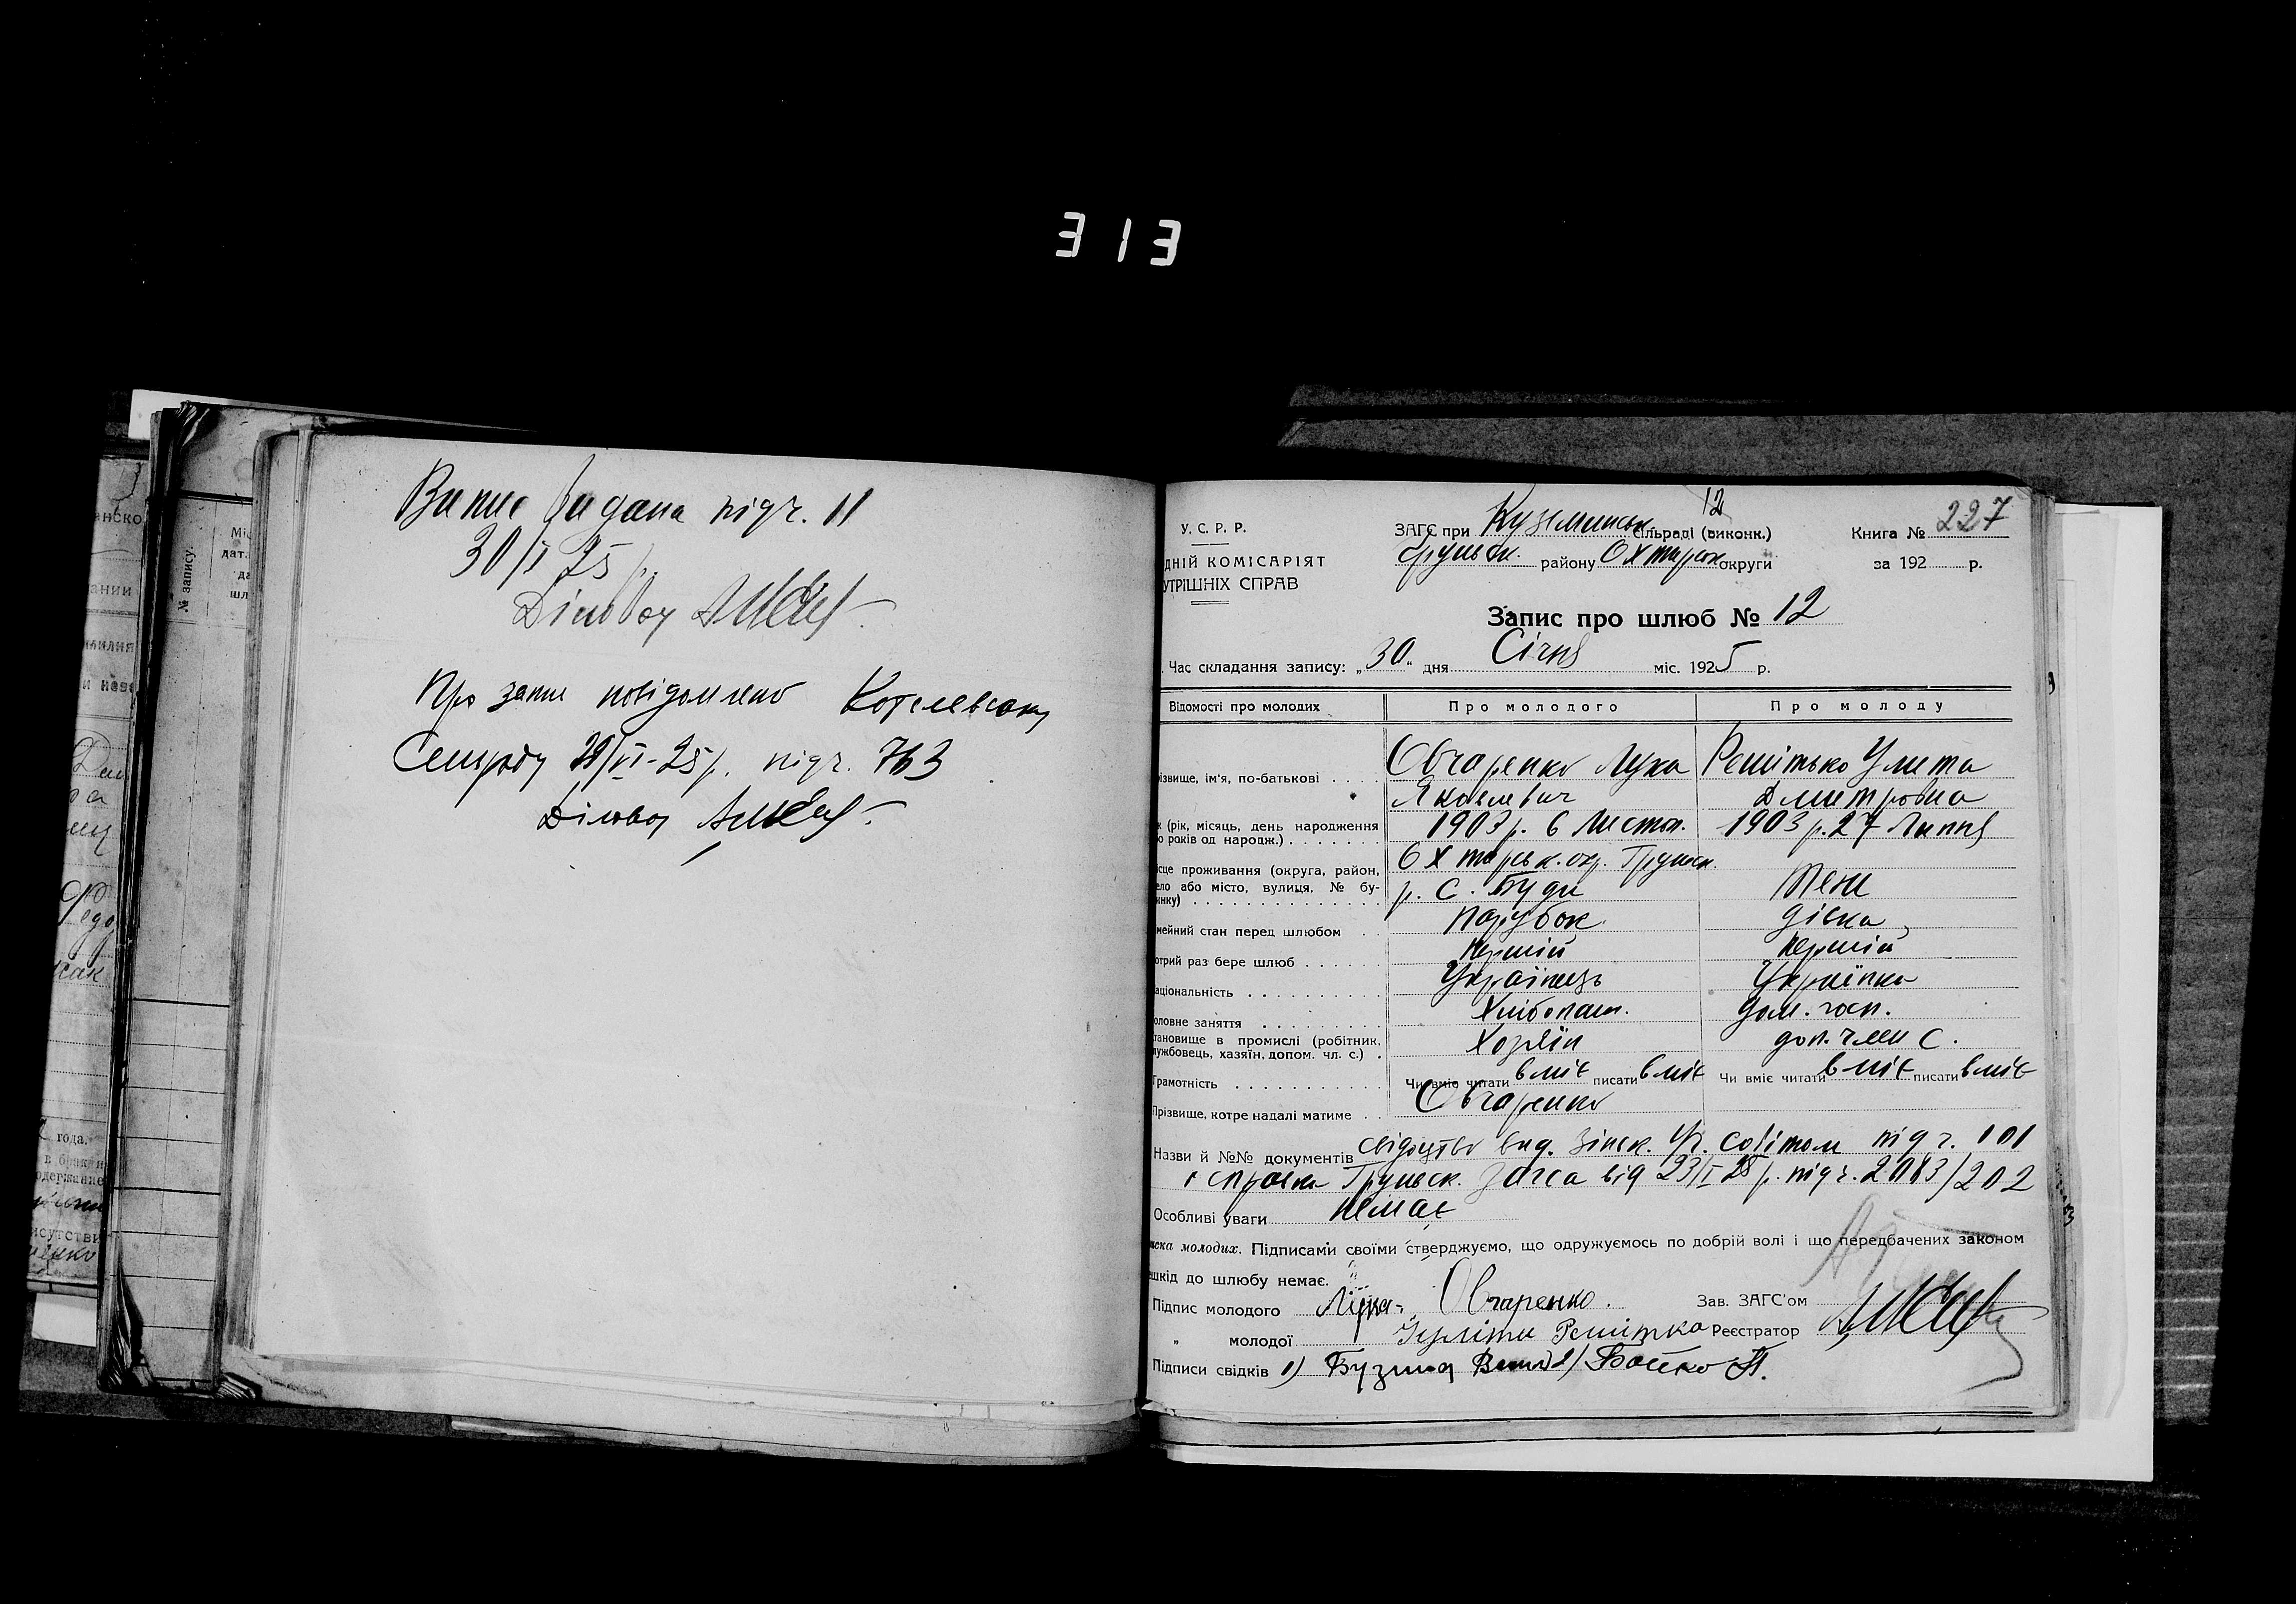 313
Випис видана під ч. 11
30/I 25 р.
Діловод
Про запис повідомлено Котелевську
Сельраду 29/VI-25 р. під ч. 763
Діловод
12
У. С. Р. Р.
ЗАГС при Кузьминськ. сільраді (виконк.)
Книга № 227
ДНІЙ КОМІСАРІЯТ
УТРІШНІХ СПРАВ
Груньск. району Охтирськ округи
за 192 р.
Запис про шлюб № 12
Час складання запису: „30" дня Січня міс. 1925 р.
Відомості про молодих
Про молодого
Про молоду
різвище, ім'я, по-батькові
Овчаренко Лука
Яковлевич
Решітько Улита
Дмитровна
к (рік, місяць, день народження
о років од народж.)
1903 р. 6 Листоп.
1903 р. 27 Липня
ісце проживання (округа, район,
ело або місто, вулиця, № бу-
инку)
Охтирськ. окр. Груньск.
р. С. Буди
Теж
мейний стан перед шлюбом
Парубок
дівка
отрий раз бере шлюб
Першій
Першій
аціональність
Українець
Українка
оловне заняття
Хлібопаш.
дом. госп.
тановище в промислі (робітник,
лужбовець, хазяїн, допом. чл. с.)
Хозяїн
доп. член С.
Грамотність
Чи вміє читати вміє писати вміє
Чи вміє читати вміє писати вміє
Прізвище, котре надалі матиме
Овчаренко
Назви й №№ документів свідоцтво вид. Зіньк. під ч. 101
і справка Груньск. Загса від 23/I 25 р. під ч. 2083/202
Особливі уваги немає
иска молодих. Підписами своїми стверджуємо, що одружуємось по добрій волі і що передбачених законом
ешкід до шлюбу немає.
Підпис молодого Лука Овчаренко.
Зав. ЗАГС'ом
„ молодої Решітка
Реєстратор
Підписи свідків 1) Бузина 2) Бойко П.